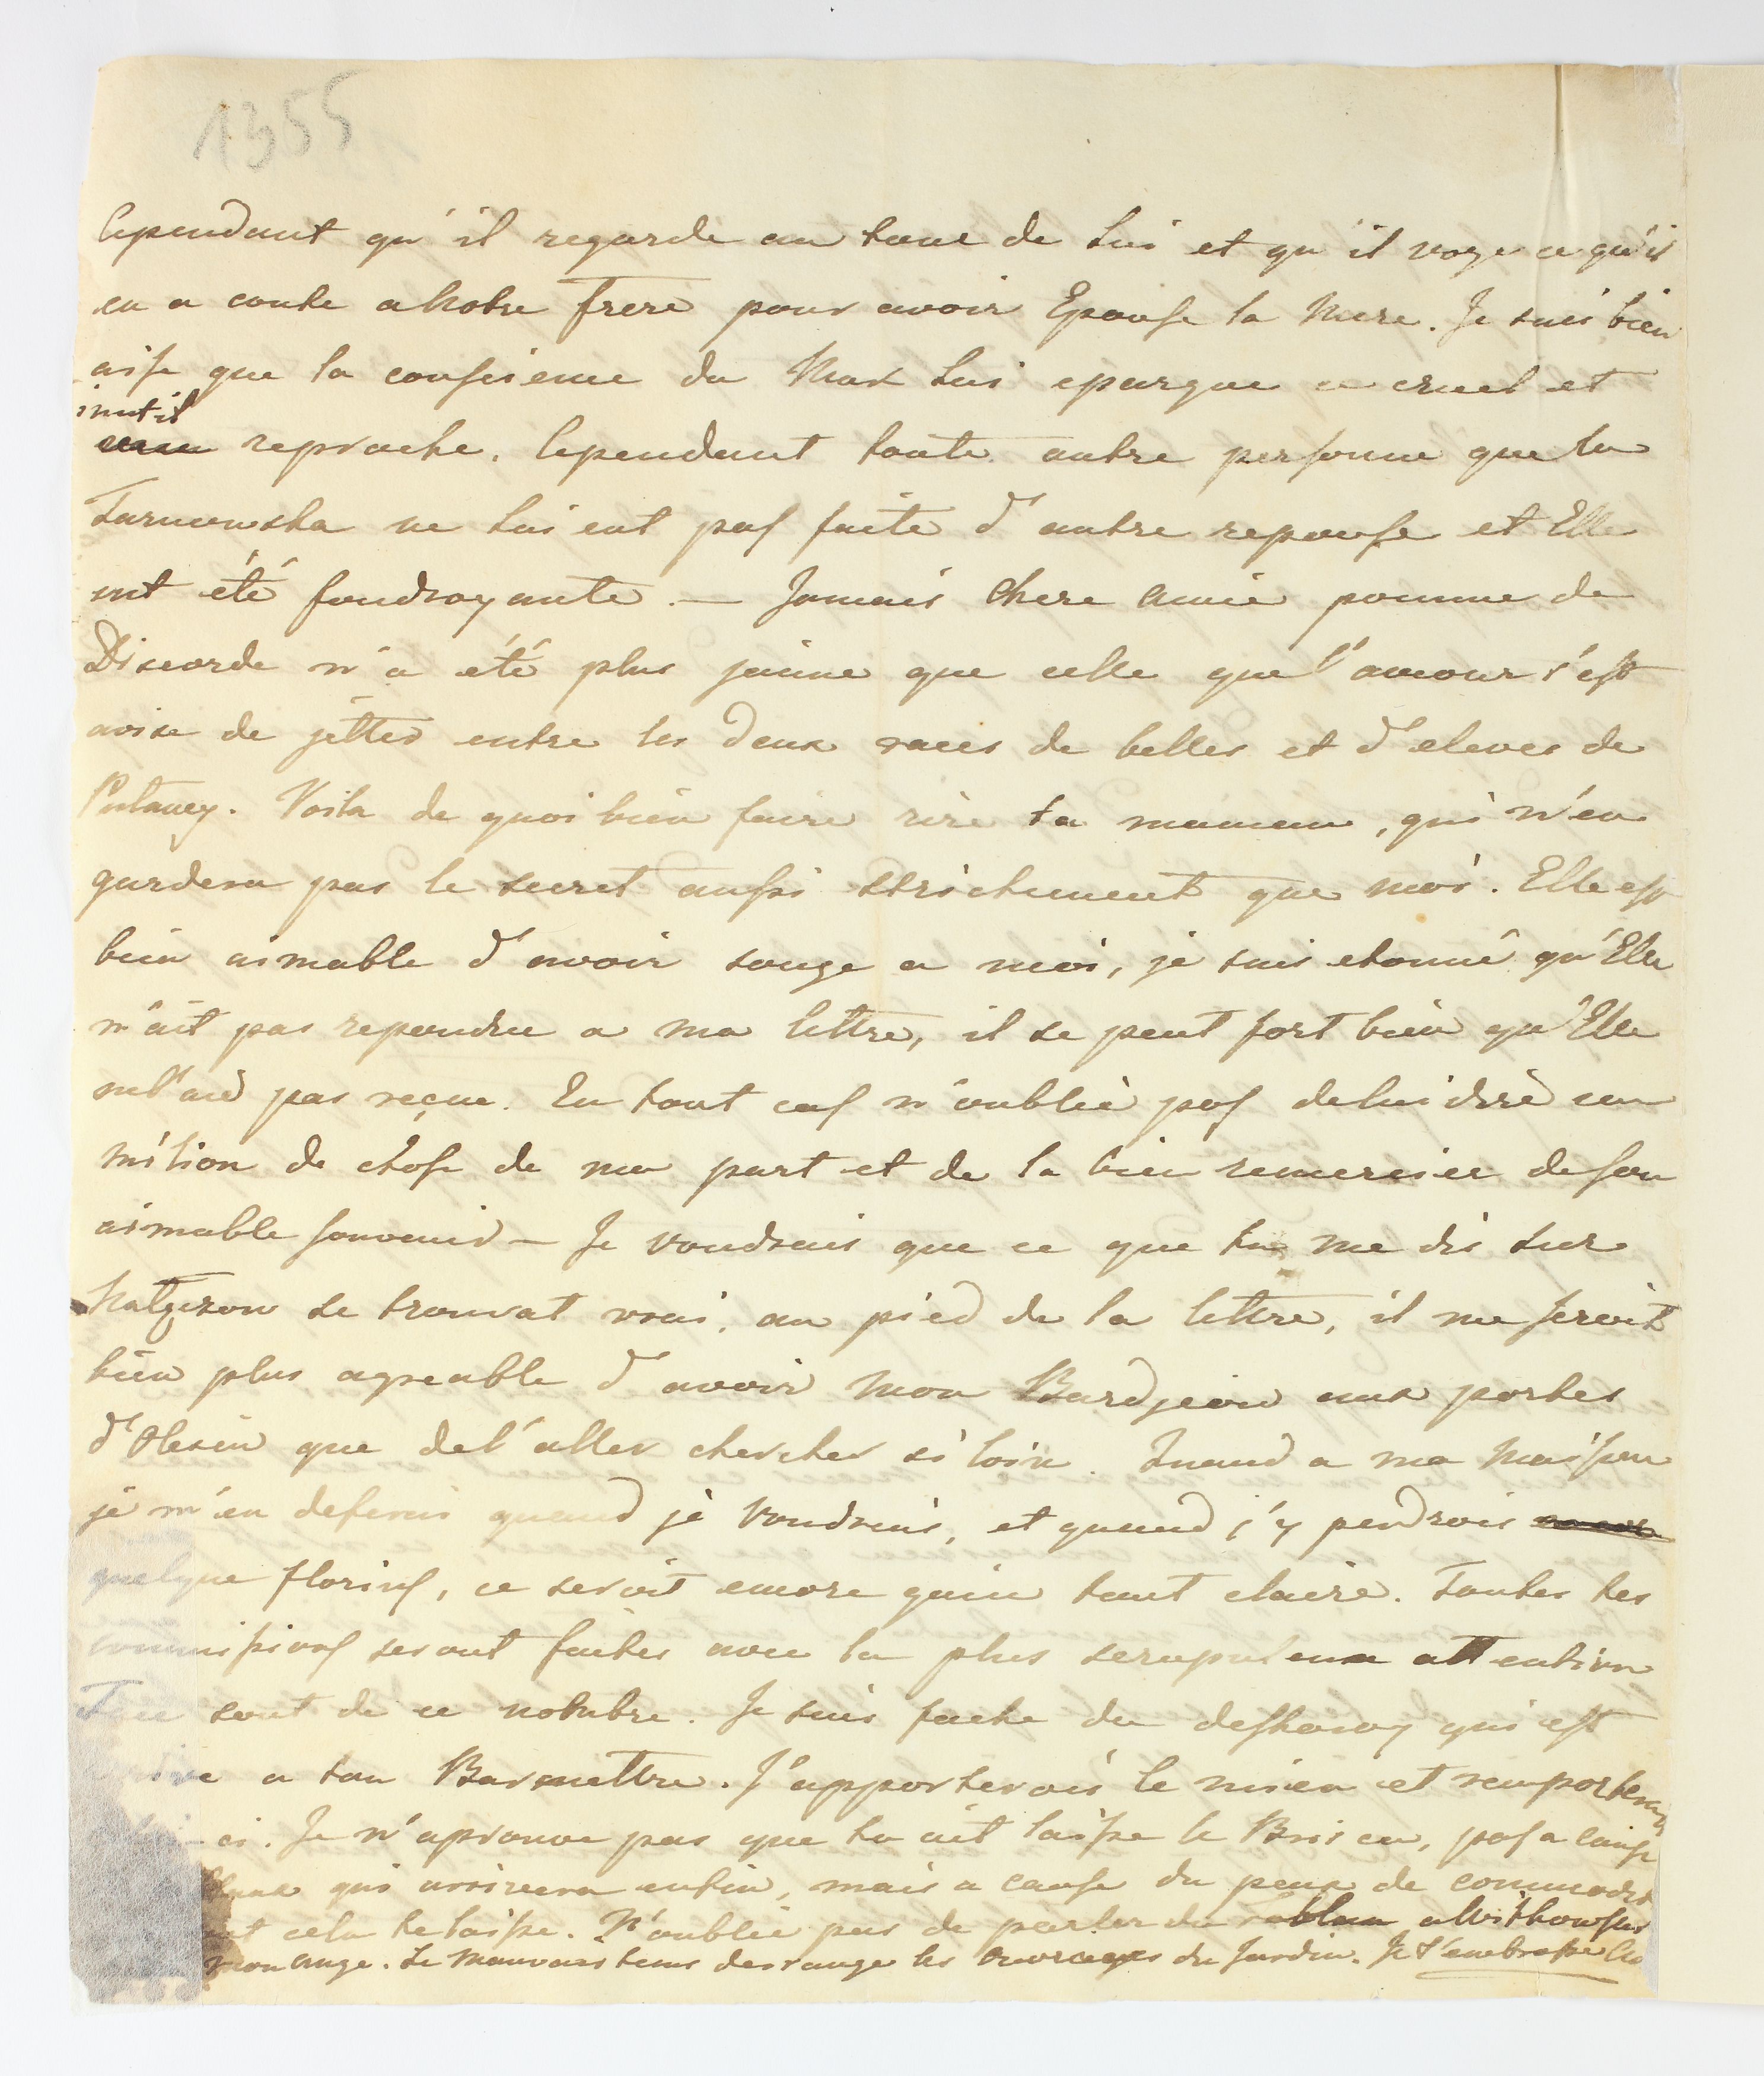 1355
Cependant qu'il regarde au tour de lui et qu'il voye ce qu'il
en a coute a Notre frere pour avoir Epouse la Mere. Je suis bien
aise que la consience du Max lui epargne ce cruel et
inutil
reproche. Cependant toute autre personne que la
Tarnowska ne lui eut pas faite d'autre reponse et Elle
eut été foudroyante. — Jamais chere Amie pomme de
Discorde n'a été plus jaune que celle que l'amour s'est
avise de jetter entre les deux races de belles et d'eleves de
Pulawy. Voila de quoi bien faire rire ta maman, qui n'en
gardera pas le secret aussi strictement que moi. Elle est
bien aimable d'avoir songe a moi, je suis etonné qu'Elle
n'ait pas repondu a ma lettre, il se peut fort bien qu'Elle
ne l'aie pas reçue. En tout cas n'oublie pas de lui dire un
milion de chose de ma part et de la bien remercier de son
aimable souvenir — Je voudrais que ce que tu me dis sur
se trouvat vrai, au pied de la lettre, il me seroit
bien plus agreable d'avoir mon Bardjeow aux portes
d'Olesin que de l'aller chercher si loin. Quand a ma Maison
je m'en deferais quand je voudrais, et quand j'y perdrois
quelque florins, ce seroit encore gain tout claire. Toutes tes
commissions seront faites avec la plus scrupuleuse attention
sont de ce nombre. Je suis fache du qui est
a ton Barmettre. J'apporterois le mien et remporterai
ci. Je n'aprouve pas que tu ait laisse le Bris, pas a cause
qui arrivera enfin, mais a cause du peux de commodit
cela te laisse. N'oublie pas de parler du
mon Ange. Le mauvais tems derange les ouvrages du Jardin. Je t'embrasse